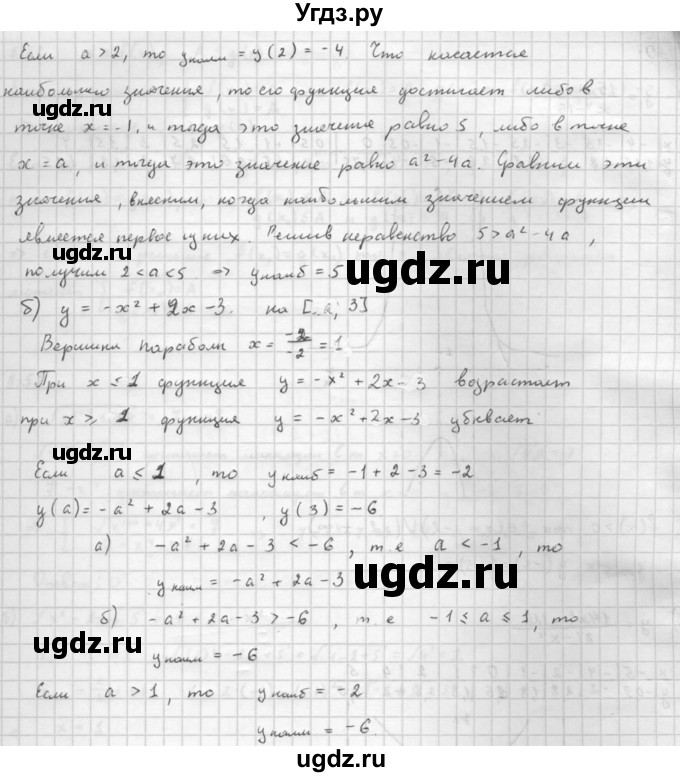 Угдз.ру
Если a > 2, то yнаим = y(2) = -4. Что касается
наибольшего значения, то его функция достигает либо в
точке x = -1, и тогда это значение равно 5, либо в точке
x = a, и тогда это значение равно a² - 4a. Сравним эти
значения, выясним, когда наибольшим значением функции
является первое из них. Решив неравенство 5 > a² - 4a,
получим 2 < a < 5 ⇒ yнаиб = 5
б) y = -x² + 2x - 3. на [a; 3]
Вершина параболы x = -2/-2 = 1
При x ≤ 1 функция y = -x² + 2x - 3 возрастает
при x ≥ 1 функция y = -x² + 2x - 3 убывает
Если a ≤ 1, то yнаиб = -1 + 2 - 3 = -2
y(a) = -a² + 2a - 3, y(3) = -6
а) -a² + 2a - 3 < -6, т е a < -1, то
yнаим = -a² + 2a - 3
б) -a² + 2a - 3 > -6, т е -1 ≤ a ≤ 1, то
yнаим = -6
Если a > 1, то yнаиб = -2
yнаим = -6
ugdz.ru
ugdz.ru
ugdz.ru
ugdz.ru
ugdz.ru
ugdz.ru
ugdz.ru
ugdz.ru
ugdz.ru
ugdz.ru
ugdz.ru
ugdz.ru